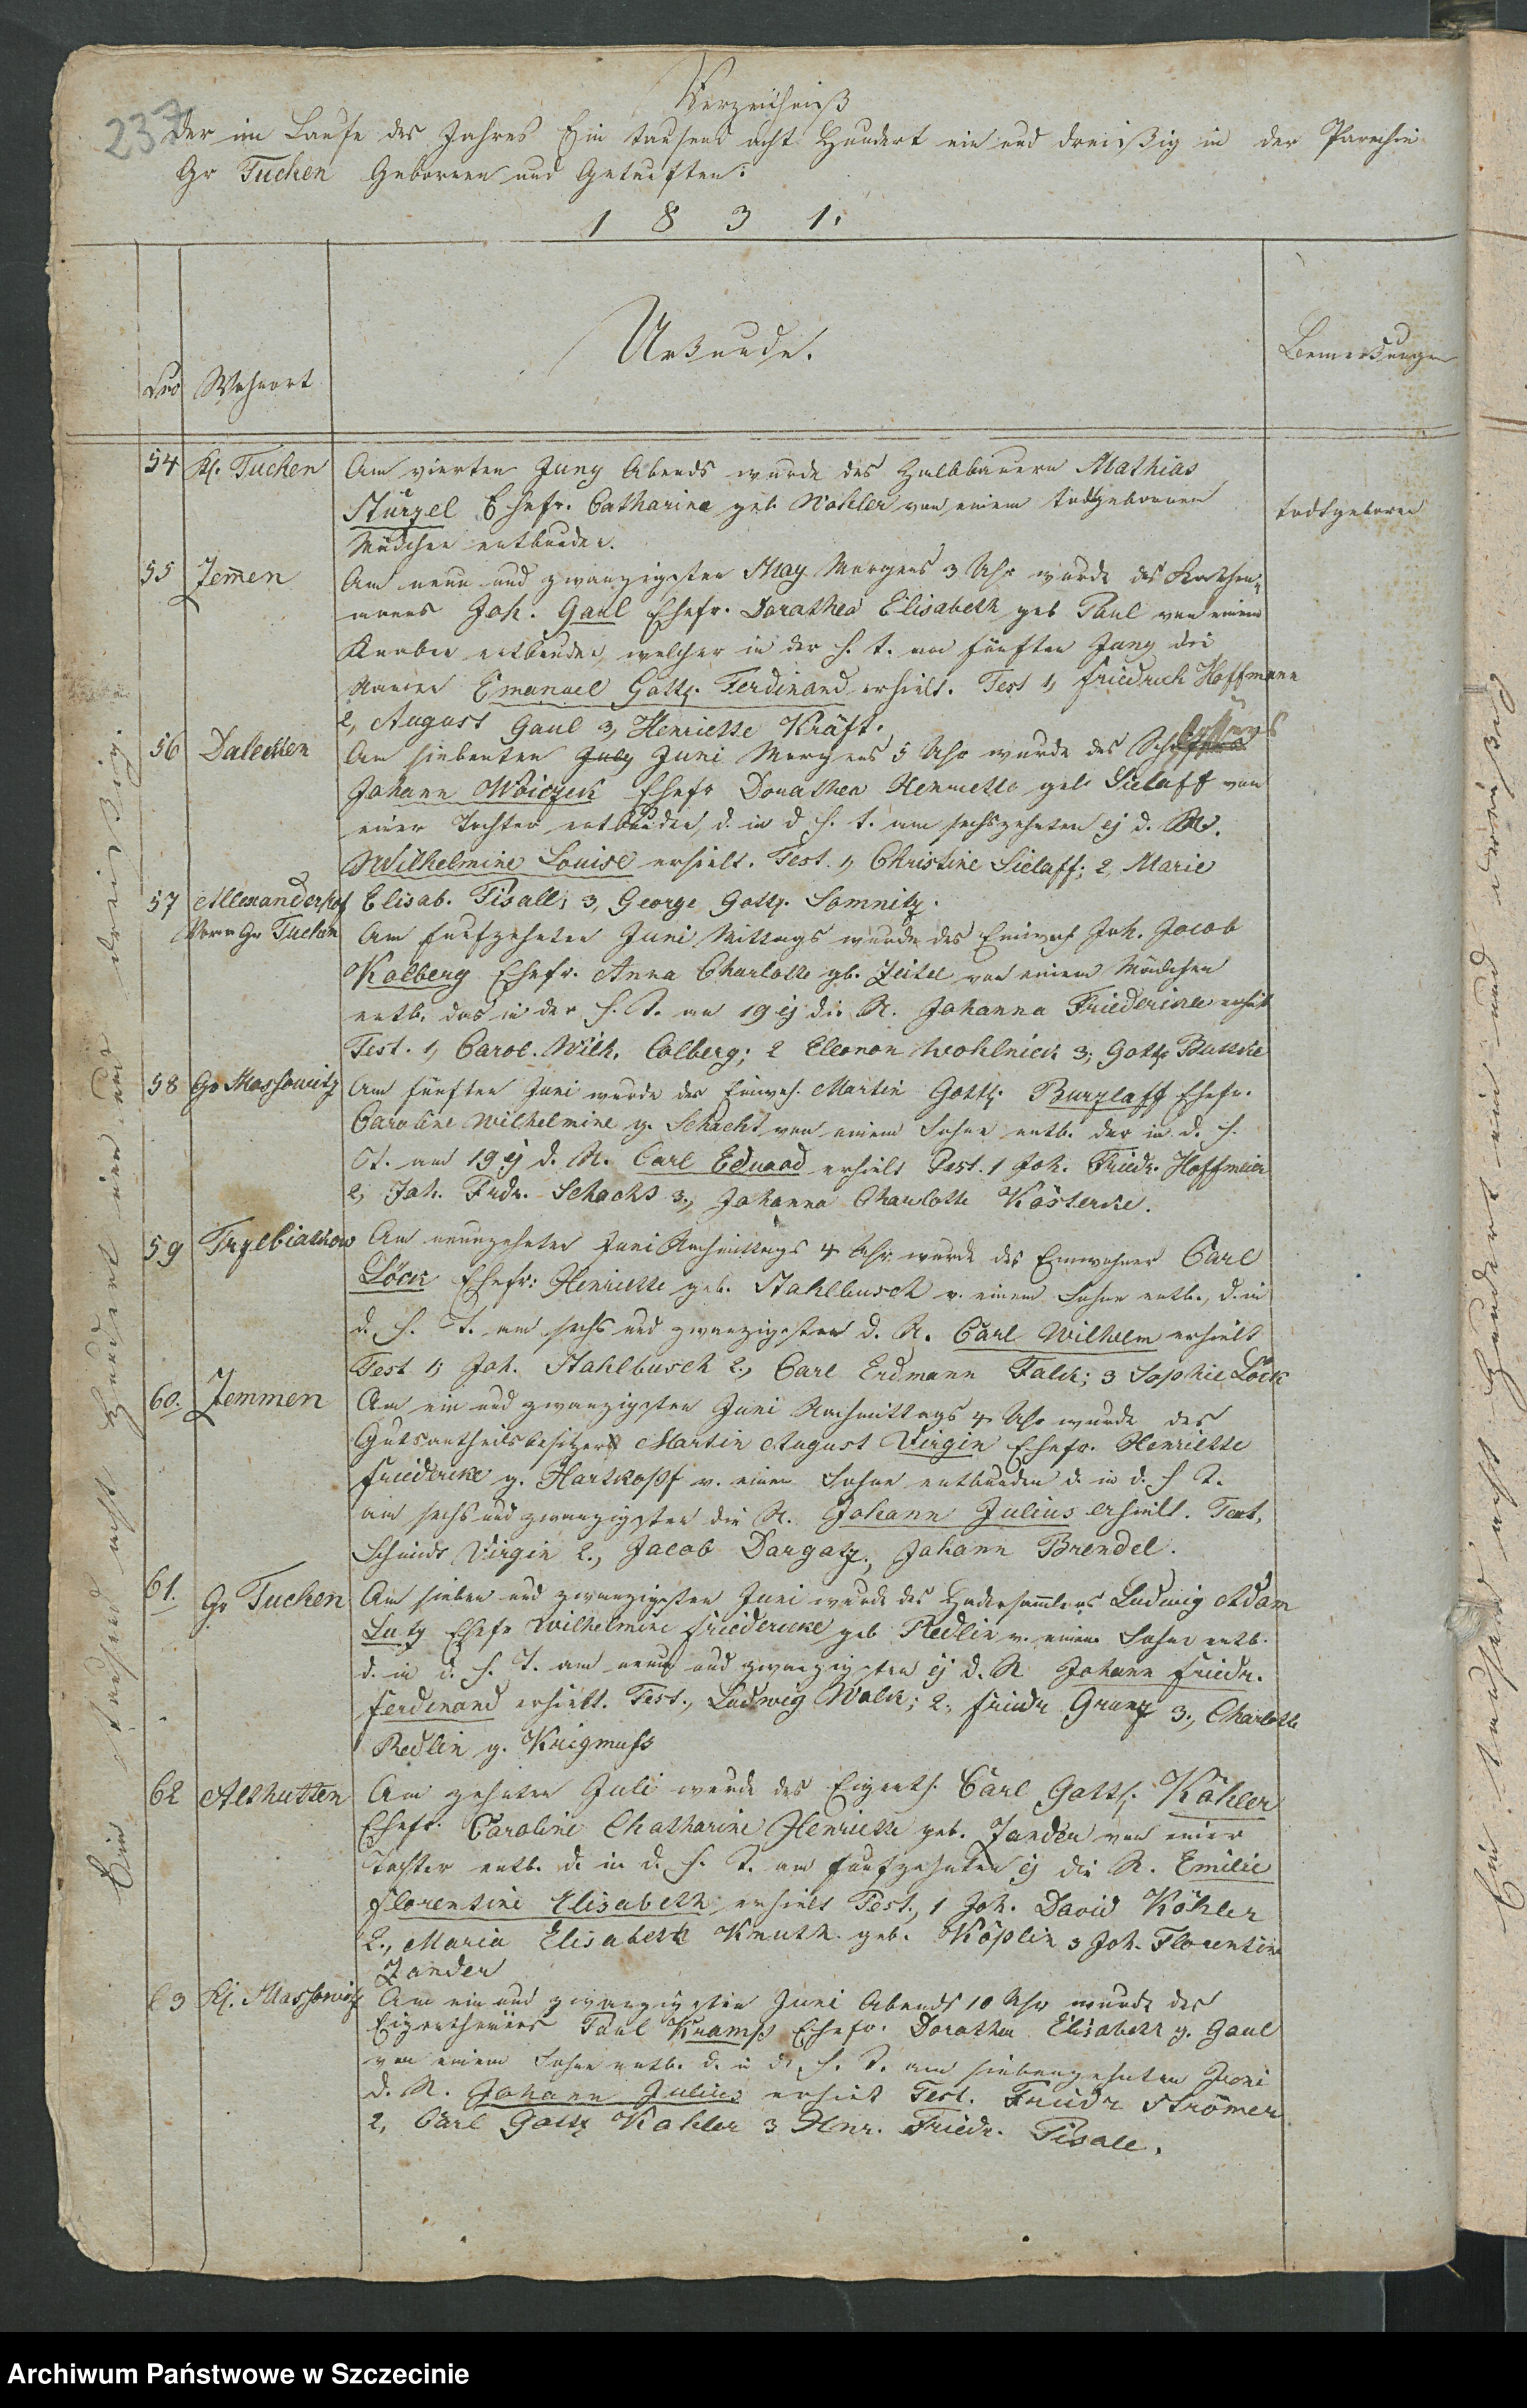 237
Verzeichniß
der im Laufe des Jahres Ein tausend acht Hundert ein und dreißig in der Parochie
Gr Tuchen Geboren und Getauften:
1 8 3 1.
Wohnort
Urkunde.
Bemerkungen
54 Kl. Tuchen Am vierten Juny Abends wurde des Halbbauern Mathias
Stürzel Ehefr. Catharine geb Wohler von einem todtgebornen
todtgeboren
Mädchen entbunden.
55 Jem̄en Am neun und zwanzigsten May Morgens 3 Uhr wurde des Kathen-
manns Joh. Gaul Ehefr. Dorathea Elisabeth geb Paul von einem
Knaben entbunden, welcher in der h. t. am fünften Juny die
Namen Emanuel Gottl. Ferdinand erhielt. Test 1, Friedrich Hoffmann
2, August Gaul 3, Henriette Kräft.
56 Daleckten Am siebenten July Juni Morgens 5 Uhr wurde des
Johann Woiczeck Ehefr Dorathea Henriette geb Sielaff von
einer Tochter entbunden, d. in d h. t. am sechszehnten ej d. N.
Wilhelmine Louise erhielt. Test. 1, Christine Sielaff; 2, Marie
Elisab. Pisall; 3, George Gottl. Somnitz.
57 Allexanderhof
Gr Tuchen
Am funfzehnten Juni Mittags wurde des Einwoh Joh. Jacob
Kolberg Ehefr. Anna Charlotte gb. Zeitel von einem Mädchen
entb. das in der h. T. am 19 ej die N. Johanna Friedericke erhielt
Test. 1, Carol. Wilh. Colberg; 2 Eleonor Wohlnick 3; Gottl Buscke
58 Gr Massowitz Am fünften Juni wurde des Einwoh. Martin Gottl. Burzlaff Ehefr.
Caroline Wilhelmine g. Schacht von einem Sohne entb. der in d. h.
T. am 19 ej d. N. Carl Eduard erhielt Test. 1 Joh. Friedr. Hoffmeier
2, Joh. Frdr. Schacht 3., Johanna Charlotte Kösterke.
59 Trzebiatkow Am neunzehnten Juni Nachmittags 4 Uhr wurde des Einwohner Carl
Löck Ehefr: Henriette geb. Stahlbusch v. einem Sohne entb., d. in
d. h. T. am sechs und zwanzigsten d. N. Carl Wilhelm erhielt
Test 1; Joh. Stahlbusch 2., Carl Erdmann Falck; 3 Sophie Löck
60. Jemmen Am ein und zwanzigsten Juni Nachmittags 4 Uhr wurde des
Gutsantheilsbesitzers Martin August Virgin Ehefr. Henriette
Friedericke g. Hartkopf v. einem Sohne entbunden d. in d. h T.
am sechs und zwanzigsten die N. Johann Julius erhielt. Test,
Virgin 2., Jacob Dargatz., Johann Brendel.
61. Gr Tuchen Am sieben und zwanzigsten Juni wurde des Hadersammlers Ludwig Adam
Lutz Ehefr Wilhelmine Friedericke geb Redlin v. einem Sohne entb.
d. in d. h. T. am neun und zwanzigsten ej d. N Johann Friedr.
Ferdinand erhielt. Test., Ludwig Walck; 2., Friedr Grunz 3., Charlotte
Redlin g.
62 Althutten Am zehnten Juli wurde des Eigenth. Carl Gottl. Köhler
Ehefr. Caroline Chatharine Henriette geb. Zander von einer
Tochter entb. d. in d. h. T. am funfzehnten ej die N. Emilie
Florentine Elisabeth erhielt Test., 1 Joh. David Köhler
2., Maria Elisabeth Knuth. geb. Köplin 3 Joh. Florentine
Zander
63 Kl. Massowitz Am ein und zwanzigsten Juni Abends 10 Uhr wurde des
Eigenthümers Paul Kramp Ehefr. Dorathea Elisabeth g. Gaul
von einem Sohne entb. d. in d. h. T. am siebenzehnten Juni
d. N. Johann Julius erhielt Test. Friedr Strömer
2, Carl Gottl Kohler 3 Hnr. Friedr. Pisall.
Ein tausend acht Hundert ein und dreißig.
Ein tausend acht Hundert ein und dreißig
Archiwum Państwowe w Szczecinie